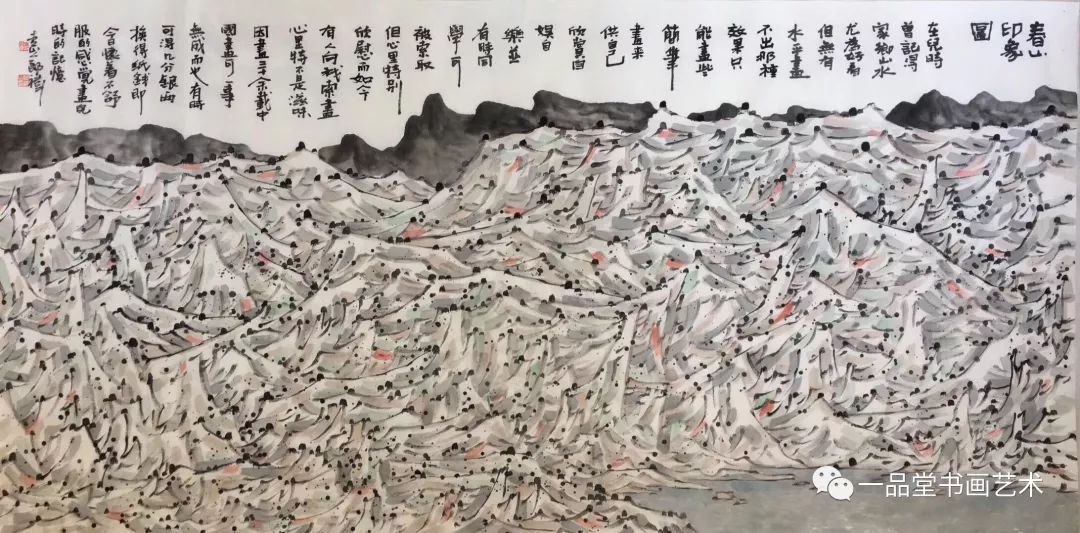 春山
印象
圖
在兒時
曾記得
家鄉山水
尤為好看
但無有
水平畫
不出那種
效果只
能畫些
簡筆
畫來
供自己
欣賞自
娛自
樂並
有時同
學可
被索取
但心里特别
欣慰而如今
有人向我索畫
心里特不是滋味
因畫三十余載中
國畫可
無成而也有時
可得几分銀両
換得紙錢即
今日懷着不舒
服的感覺畫兒
時的記憶
一品堂书画艺术